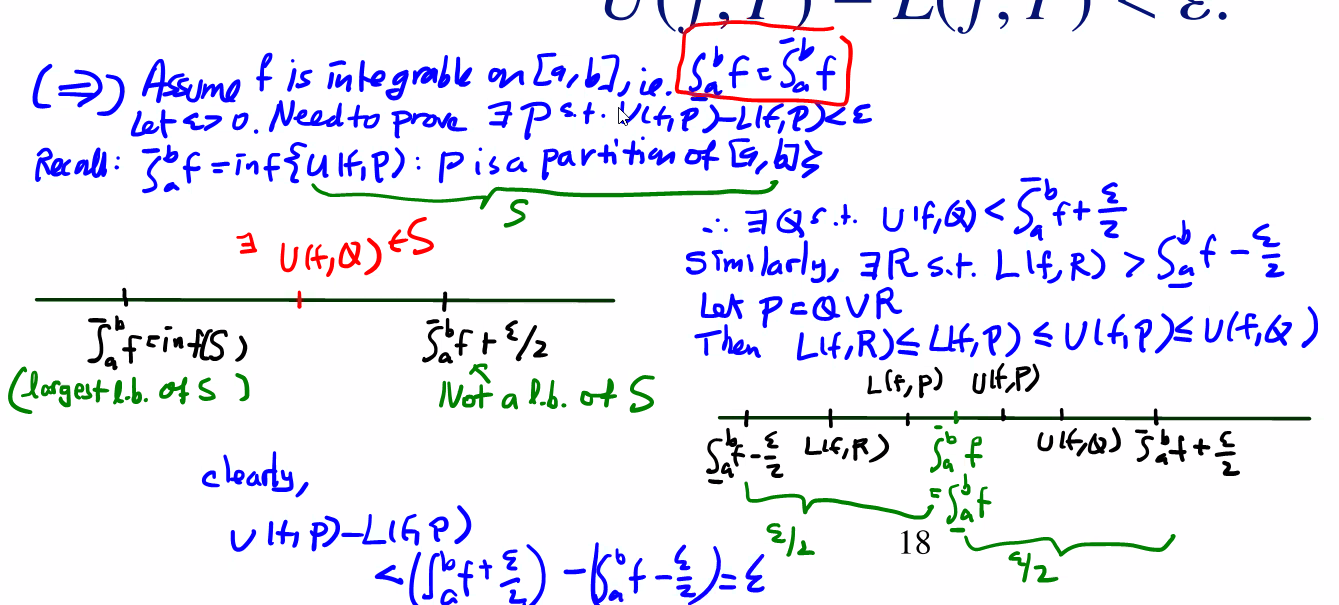 U(f, P) − L(f, P) < ε.
(⇒) Assume f is integrable on [a,b], i.e. ∫̲ₐᵇ f = ∫̄ₐᵇ f
Let ε>0. Need to prove ∃ P s.t. U(f,P)−L(f,P)<ε
Recall: ∫̄ₐᵇ f = inf{U(f,P): P is a partition of [a,b]}
S
∃ U(f,Q) ∈ S
∫̄ₐᵇ f = inf(S)
∫̄ₐᵇ f + ε/2
(largest l.b. of S)
Not a l.b. of S
∴ ∃ Q s.t. U(f,Q) < ∫̄ₐᵇ f + ε/2
Similarly, ∃ R s.t. L(f,R) > ∫̲ₐᵇ f − ε/2
Let P = Q ∪ R
Then L(f,R) ≤ L(f,P) ≤ U(f,P) ≤ U(f,Q)
L(f,P) U(f,P)
∫̲ₐᵇ f − ε/2 L(f,R) ∫̄ₐᵇ f U(f,Q) ∫̄ₐᵇ f + ε/2
= ∫̲ₐᵇ f
ε/2 ε/2
clearly,
U(f,P)−L(f,P)
< (∫ₐᵇ f + ε/2) − (∫ₐᵇ f − ε/2) = ε
18